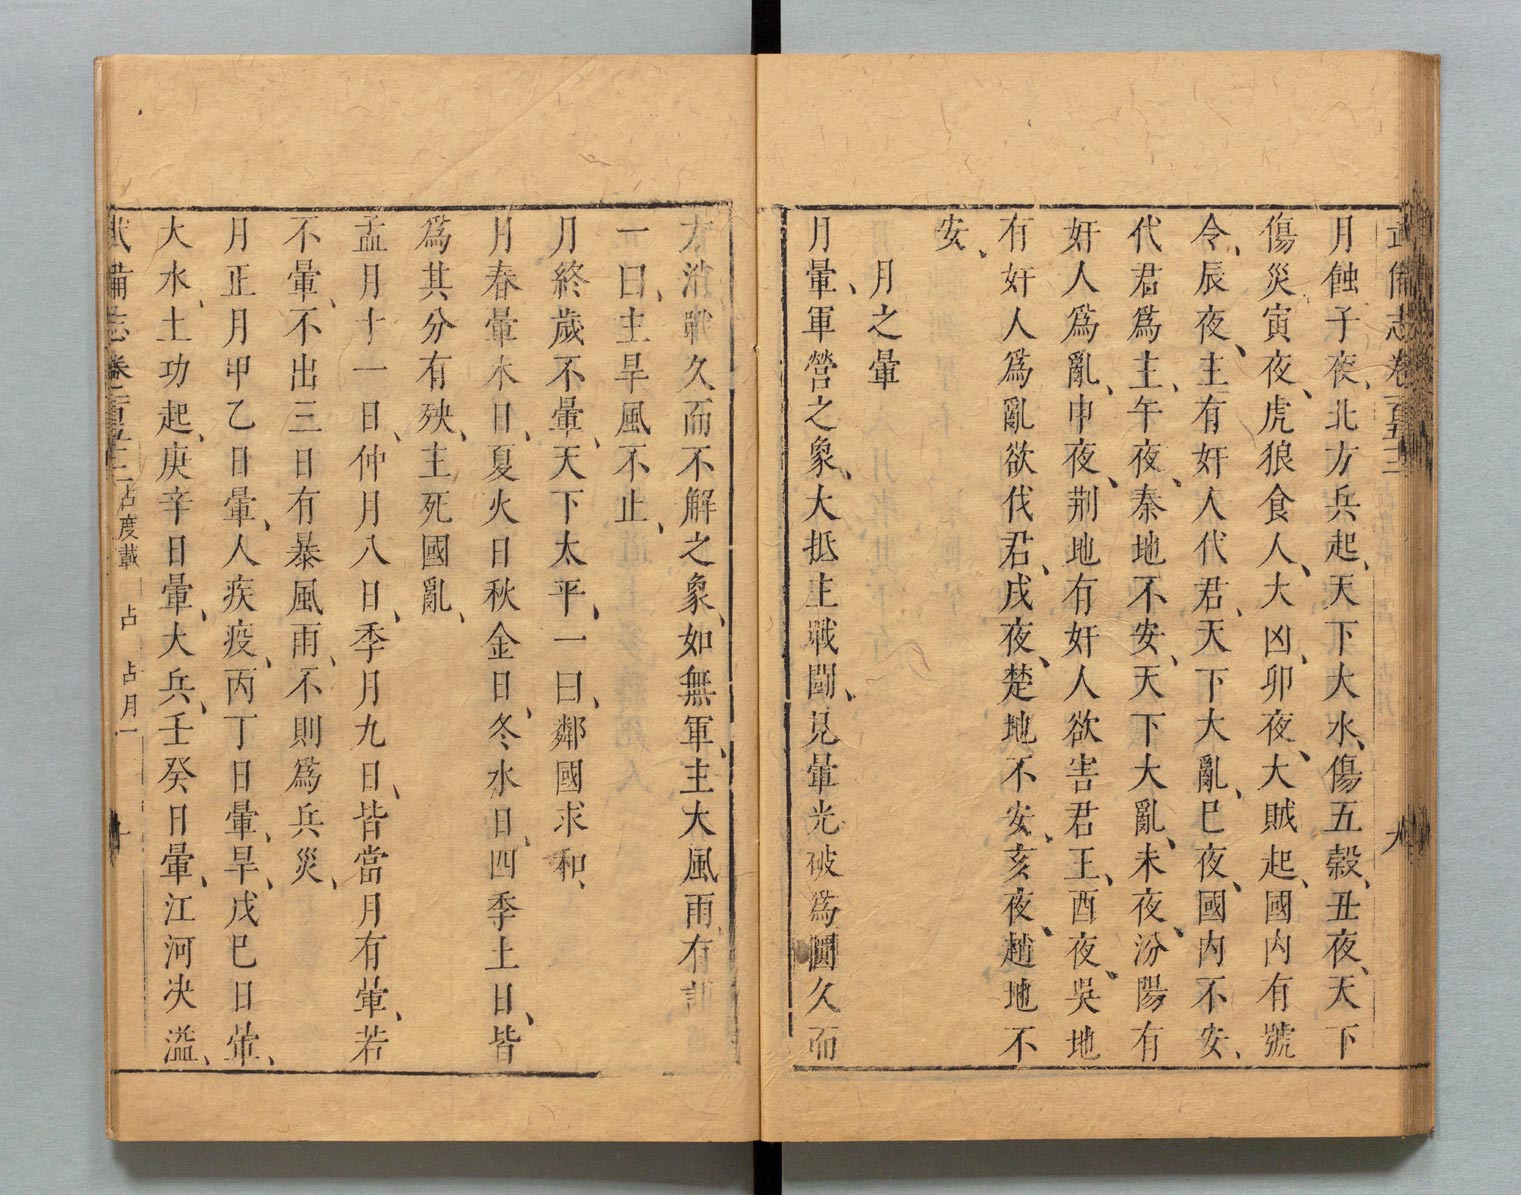 武備志卷一百五十三 九
月蝕子夜、北方兵起、天下大水、傷五穀、丑夜、天下
傷災寅夜、虎狼食人、大凶、卯夜、大賊起、國內有號
令、辰夜、主有奸人代君、天下大亂、巳夜、國內不安、
代君爲主、午夜、秦地不安、天下大亂、未夜、汾陽有
奸人爲亂、申夜、荆地有奸人欲害君王、酉夜、吳地
有奸人爲亂欲伐君、戌夜、楚地不安、亥夜、趙地不
安、
月之暈
月暈、軍營之象、大抵主戰鬭、見暈光破爲圓久而
不消戰久而不解之象、如無軍、主大風雨、有
一曰、主旱風不止、
月終歲不暈、天下太平、一曰、鄰國求和、
月春暈木日、夏火日秋金日、冬水日、四季土日、皆
爲其分有殃、主死國亂、
孟月十一日、仲月八日、季月九日、皆當月有暈、若
不暈、不出三日有暴風雨、不則爲兵災、
月正月甲乙日暈、人疾疫、丙丁日暈、旱、戊巳日暈、
大水、土功起、庚辛日暈、大兵、壬癸日暈、江河决溢、
武備志卷一百五十三 占度載 占 占月一 十